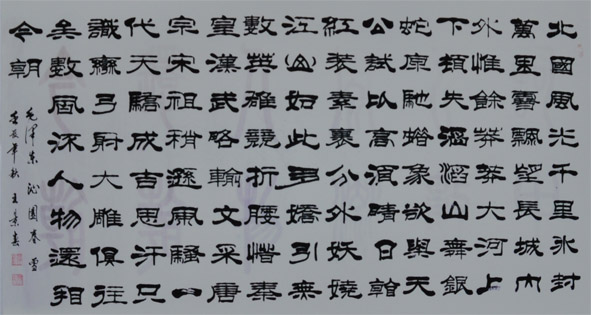 北國風光千里冰封
萬里雪飄望長城內
外惟餘莽莽大河上
下頓失滔滔山舞銀
蛇原馳蠟象欲與天
公試比高須晴日看
紅裝素裹分外妖嬈
江山如此多嬌引無
數英雄競折腰惜秦
皇漢武略輸文采唐
宗宋祖稍遜風騷一
代天驕成吉思汗只
識彎弓射大雕俱往
矣數風流人物還看
今朝
毛澤東 沁園春 雪
壬辰年秋 王